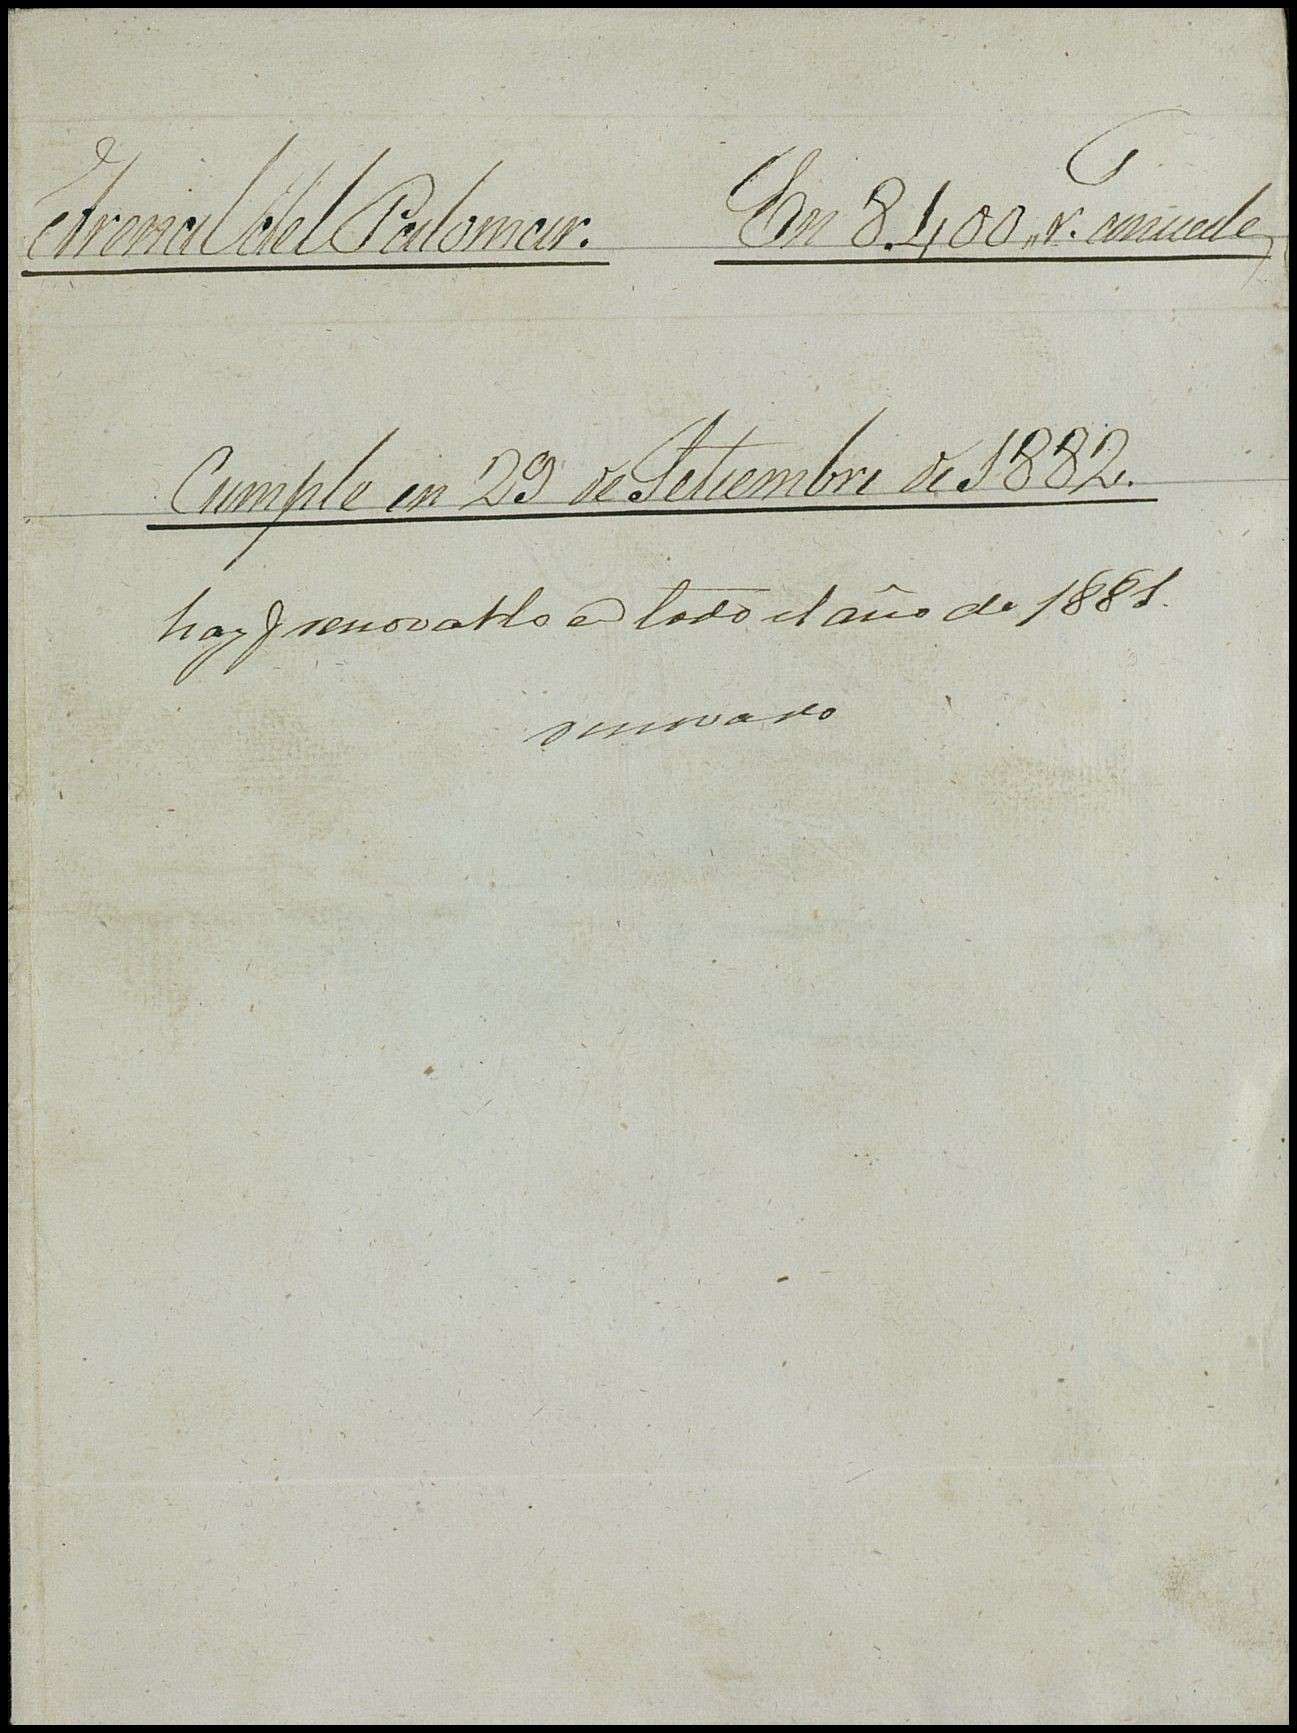 Arenal del Palomar. En 8.400,, r.^s anuales
Cumple en 29 de Setiembre de 1882.
hay q renovarlo en todo el año de 1881.
renovado